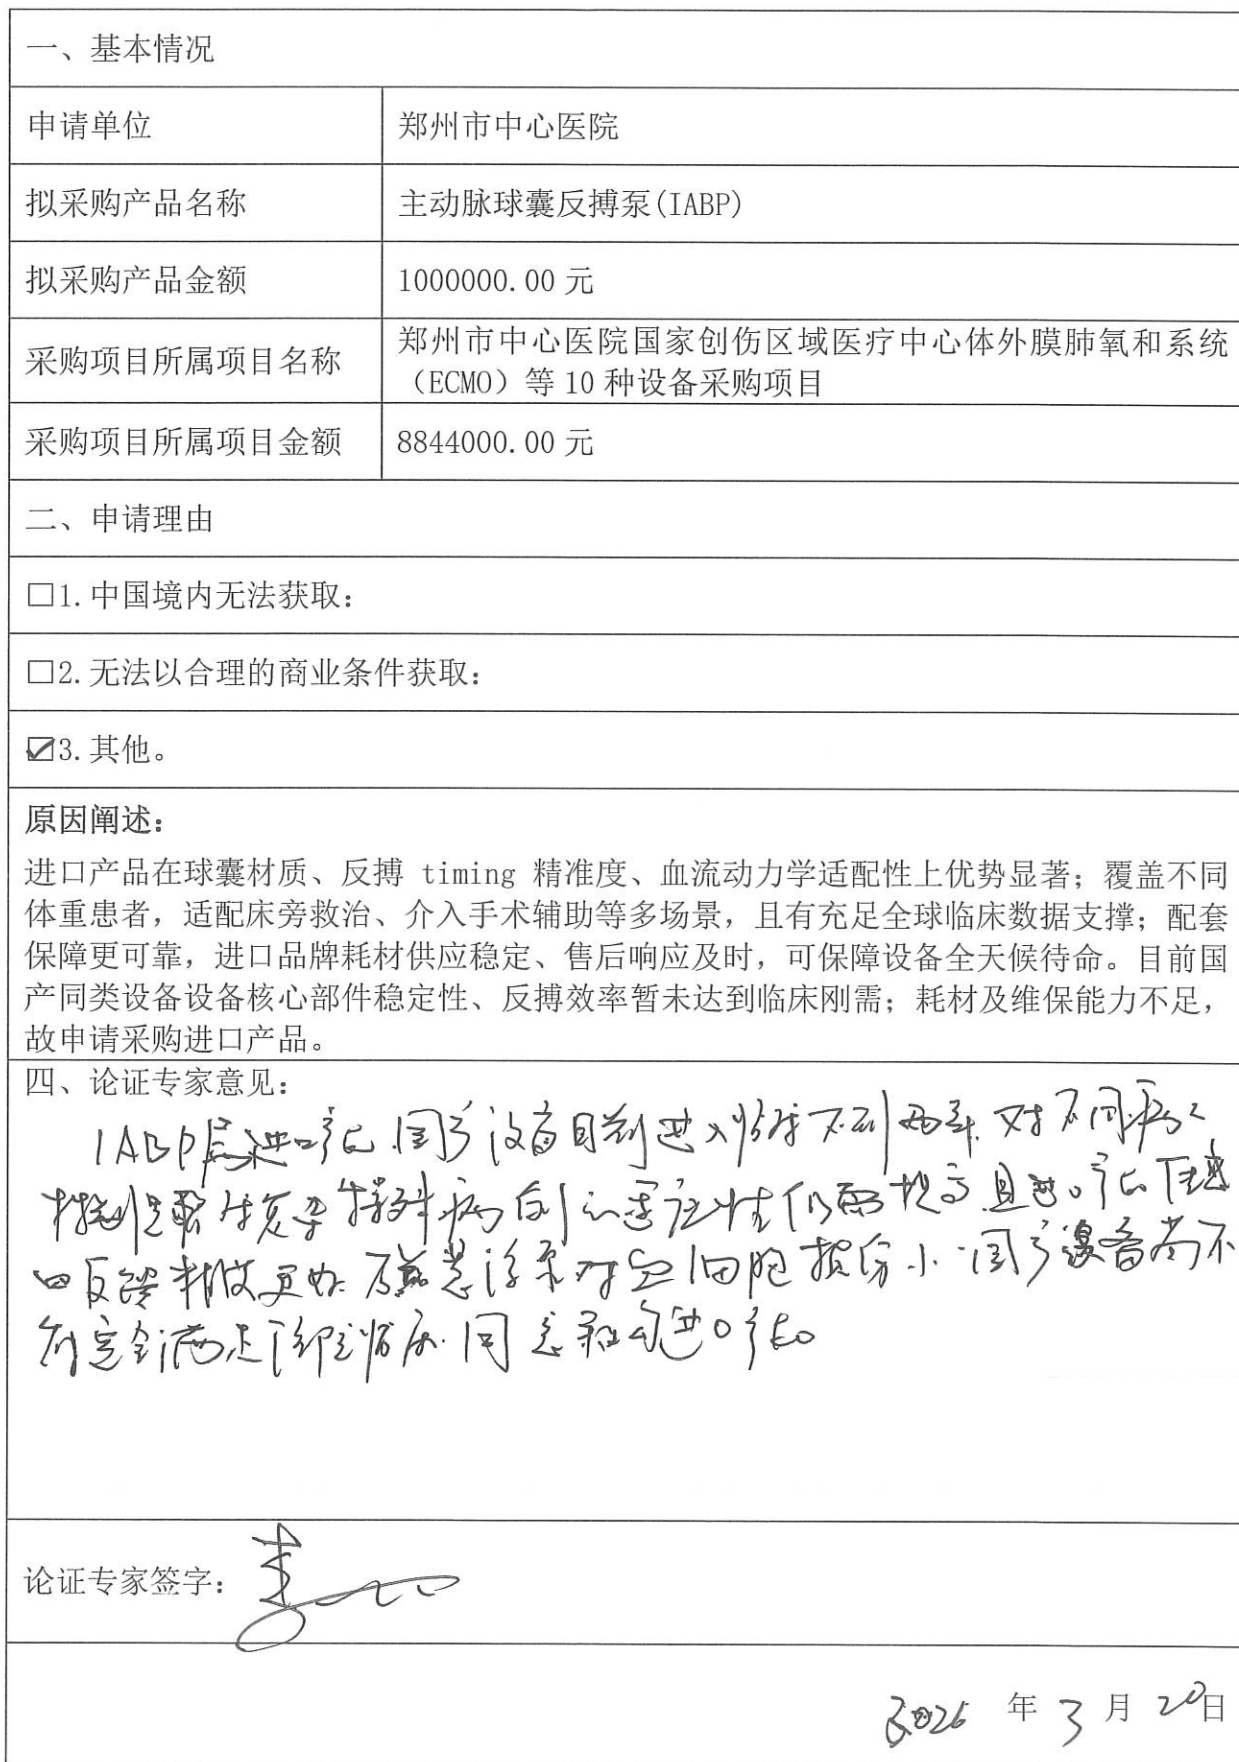 一、基本情况
申请单位
郑州市中心医院
拟采购产品名称
主动脉球囊反搏泵(IABP)
拟采购产品金额
1000000.00 元
采购项目所属项目名称
郑州市中心医院国家创伤区域医疗中心体外膜肺氧和系统
（ECMO）等 10 种设备采购项目
采购项目所属项目金额
8844000.00 元
二、申请理由
□1.中国境内无法获取：
□2.无法以合理的商业条件获取：
☑3.其他。
原因阐述：
进口产品在球囊材质、反搏 timing 精准度、血流动力学适配性上优势显著；覆盖不同
体重患者，适配床旁救治、介入手术辅助等多场景，且有充足全球临床数据支撑；配套
保障更可靠，进口品牌耗材供应稳定、售后响应及时，可保障设备全天候待命。目前国
产同类设备设备核心部件稳定性、反搏效率暂未达到临床刚需；耗材及维保能力不足，
故申请采购进口产品。
四、论证专家意见：
IABP属进口产品.国产设备目前进入临床不到两年.对不同病人
特别是 复杂特殊病例的适应性仍需提高.且进口产品压力
反馈精度更好. 悬浮泵对血细胞损伤小.国产设备尚不
能完全满足 临床.同意采购进口产品
论证专家签字：
2026 年 3 月 20日